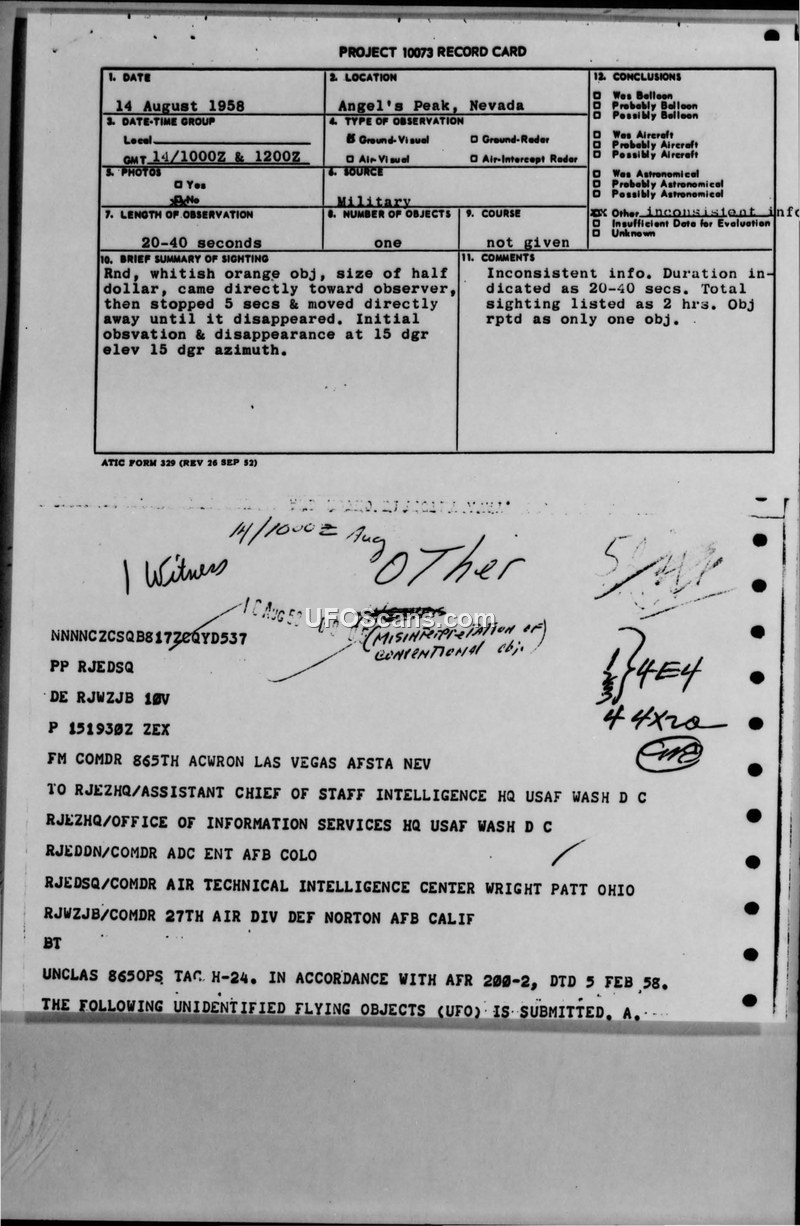 PROJECT 10073 RECORD CARD
1. DATE
14 August 1958
2. LOCATION
Angel's Peak, Nevada
12. CONCLUSIONS
Was Balloon
Probably Balloon
Possibly Balloon
Was Aircraft
Probably Aircraft
Possibly Aircraft
Was Astronomical
Probably Astronomical
Possibly Astronomical
Other inconsistent info
Insufficient Data for Evaluation
Unknown
3. DATE-TIME GROUP
Local
GMT 14/1000Z & 1200Z
4. TYPE OF OBSERVATION
Ground-Visual
Ground-Radar
Air-Visual
Air-Intercept Radar
5. PHOTOS
Yes
No
6. SOURCE
Military
7. LENGTH OF OBSERVATION
20-40 seconds
8. NUMBER OF OBJECTS
one
9. COURSE
not given
10. BRIEF SUMMARY OF SIGHTING
Rnd, whitish orange obj, size of half
dollar, came directly toward observer,
then stopped 5 secs & moved directly
away until it disappeared. Initial
obsvation & disappearance at 15 dgr
elev 15 dgr azimuth.
11. COMMENTS
Inconsistent info. Duration in-
dicated as 20-40 secs. Total
sighting listed as 2 hrs. Obj
rptd as only one obj.
ATIC FORM 329 (REV 26 SEP 52)
14/1000Z Aug
1 Witness
OTher
UFOScans.com
(Misinterpretation of
conventional obj.)
NNNNCZCSQB817ZCQYD537
PP RJEDSQ
DE RJWZJB 10V
P 151930Z ZEX
4E4
4 4X20
FM COMDR 865TH ACWRON LAS VEGAS AFSTA NEV
TO RJEZHQ/ASSISTANT CHIEF OF STAFF INTELLIGENCE HQ USAF WASH D C
RJEZHQ/OFFICE OF INFORMATION SERVICES HQ USAF WASH D C
RJEDDN/COMDR ADC ENT AFB COLO
RJEDSQ/COMDR AIR TECHNICAL INTELLIGENCE CENTER WRIGHT PATT OHIO
RJWZJB/COMDR 27TH AIR DIV DEF NORTON AFB CALIF
BT
UNCLAS 865OPS TAC H-24. IN ACCORDANCE WITH AFR 200-2, DTD 5 FEB 58.
THE FOLLOWING UNIDENTIFIED FLYING OBJECTS (UFO) IS SUBMITTED. A.